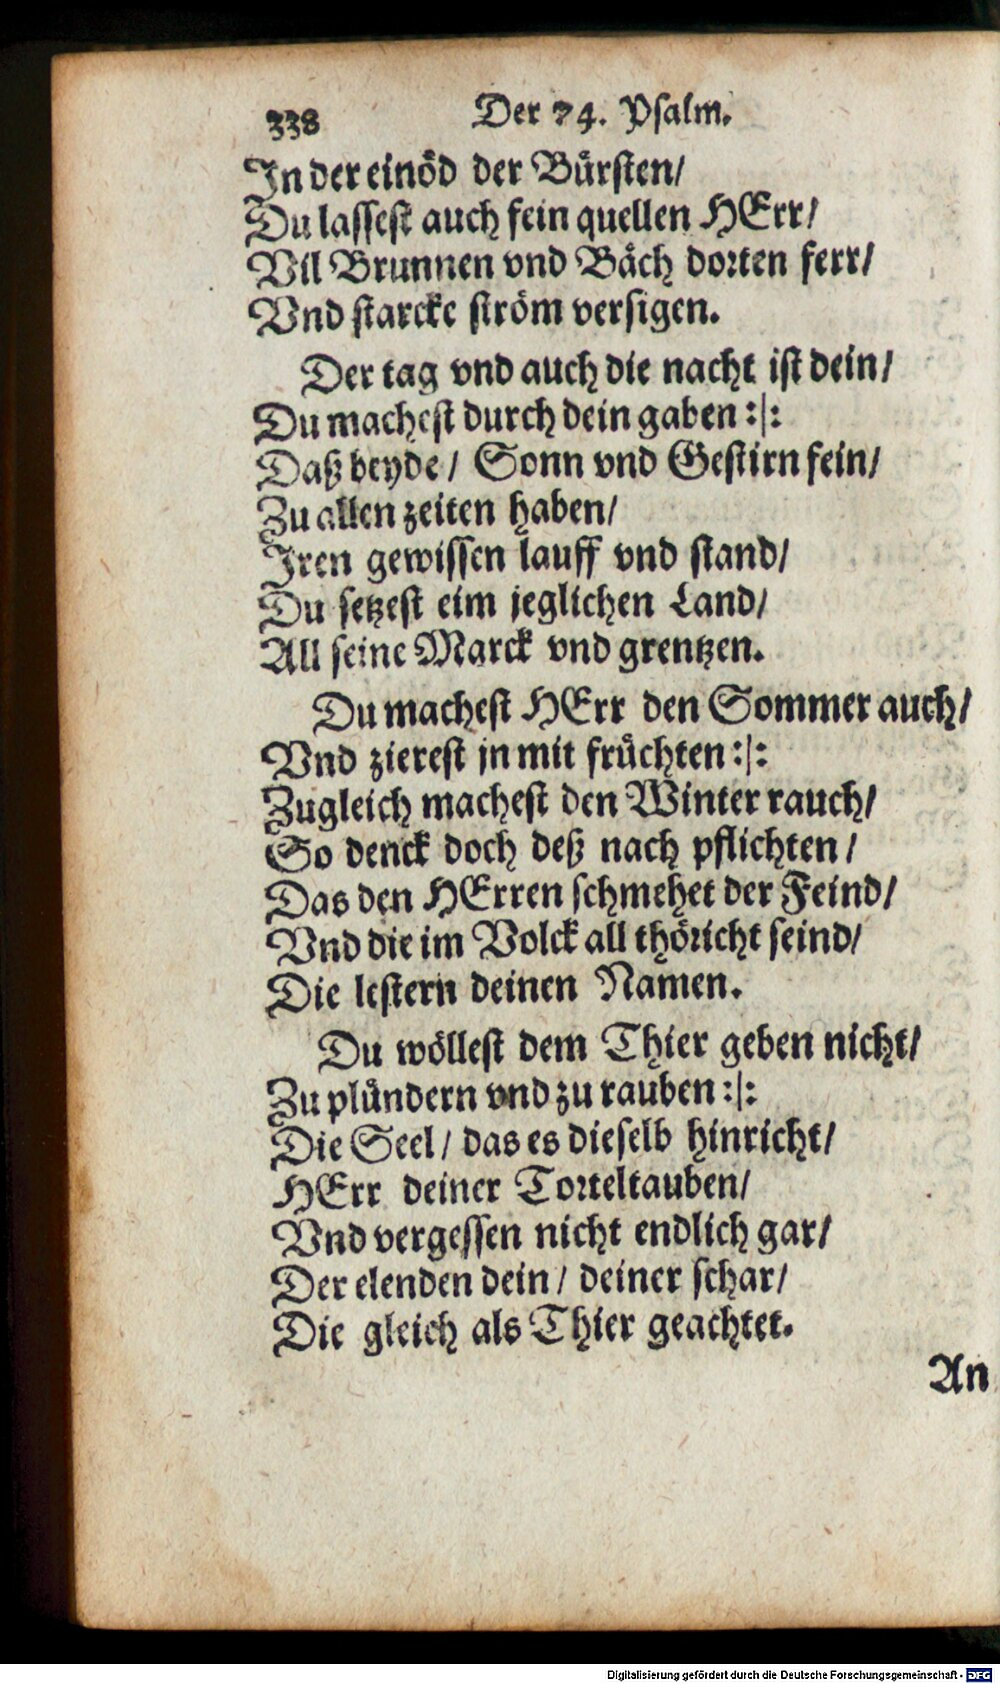 338 Der 74. Psalm.
In der einöd der Bürsten/
Du lassest auch fein quellen HErr/
Vil Brunnen vnd Bäch dorten ferr/
Vnd starcke ström versigen.
Der tag vnd auch die nacht ist dein/
Du machest durch dein gaben :|:
Daß beyde/ Sonn vnd Gestirn fein/
Zu allen zeiten haben/
Iren gewissen lauff vnd stand/
Du setzest eim jeglichen Land/
All seine Marck vnd grentzen.
Du machest HErr den Sommer auch/
Vnd zierest jn mit früchten :|:
Zugleich machest den Winter rauch/
So denck doch deß nach pflichten/
Das den HErren schmehet der Feind/
Vnd die im Volck all thöricht seind/
Die lestern deinen Namen.
Du wöllest dem Thier geben nicht/
Zu plündern vnd zu rauben :|:
Die Seel/ das es dieselb hinricht/
HErr deiner Torteltauben/
Vnd vergessen nicht endlich gar/
Der elenden dein/ deiner schar/
Die gleich als Thier geachtet.
An
Digitalisierung gefördert durch die Deutsche Forschungsgemeinschaft - DFG